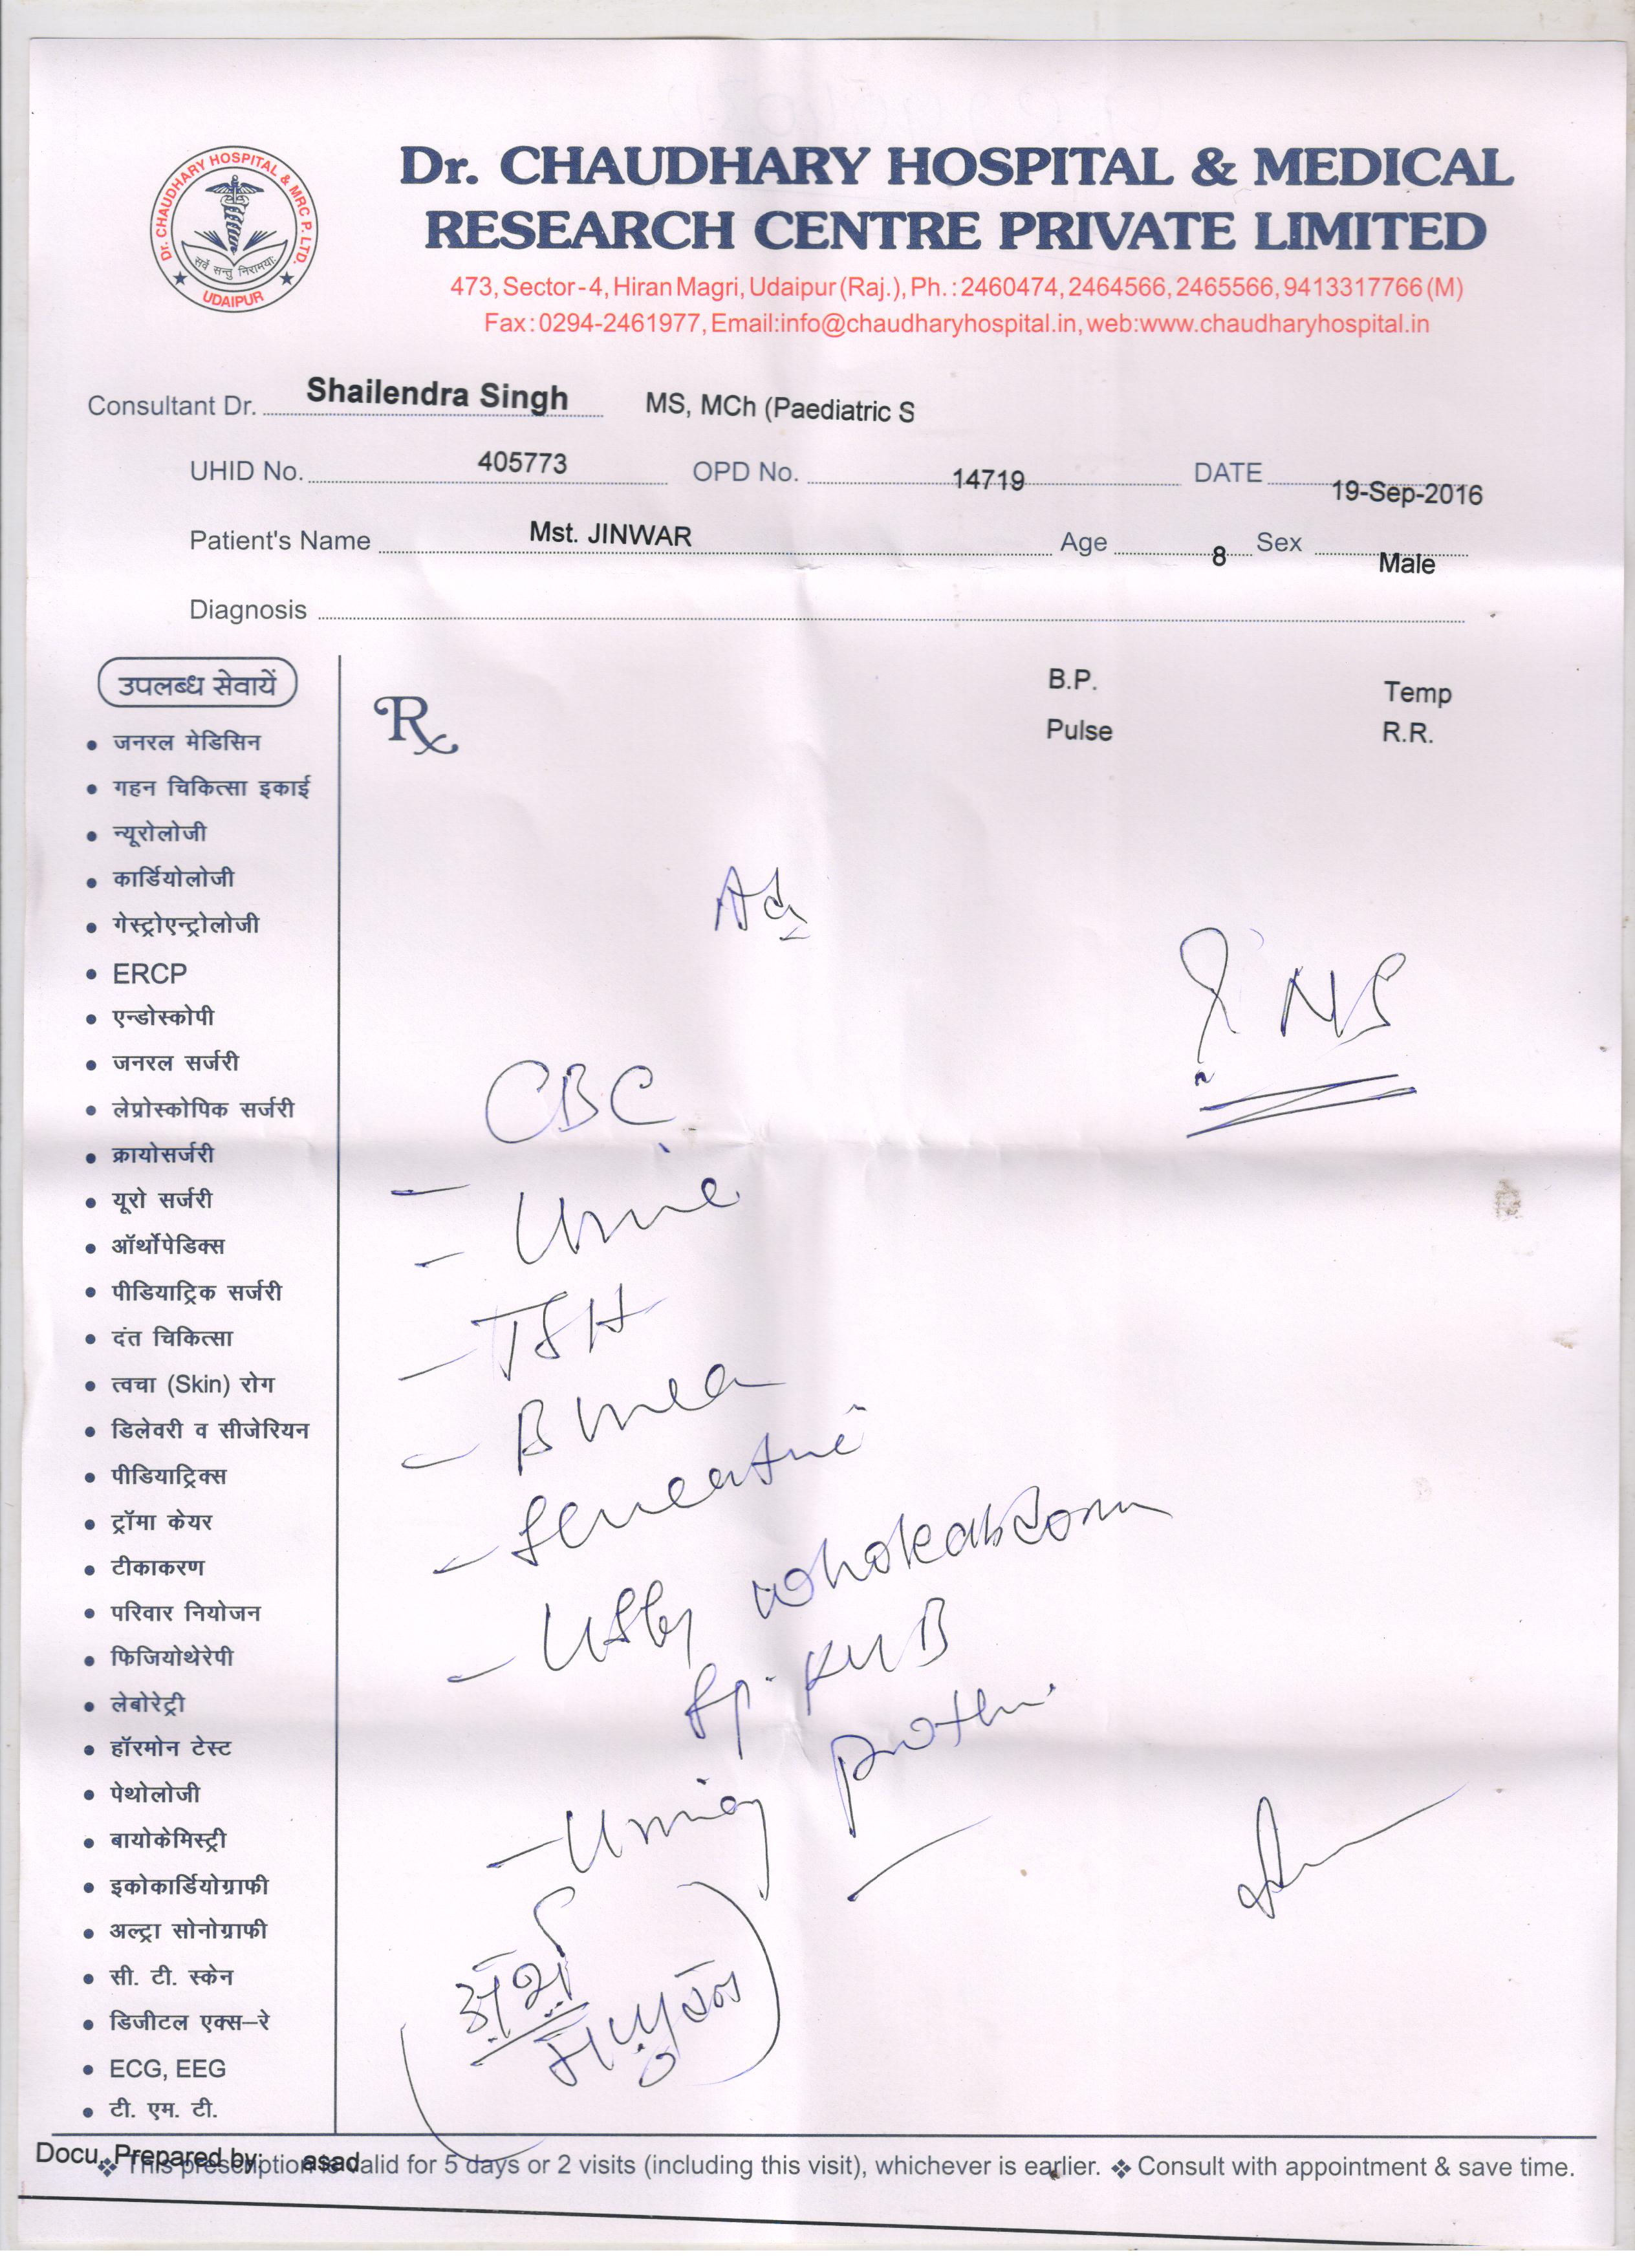 Dr. CHAUDHARY HOSPITAL & MRC P. LTD.
सर्वे सन्तु निरामयाः
UDAIPUR
Dr. CHAUDHARY HOSPITAL & MEDICAL
RESEARCH CENTRE PRIVATE LIMITED
473, Sector-4, Hiran Magri, Udaipur (Raj.), Ph. : 2460474, 2464566, 2465566, 9413317766 (M)
Fax : 0294-2461977, Email:info@chaudharyhospital.in, web:www.chaudharyhospital.in
Consultant Dr. Shailendra Singh MS, MCh (Paediatric S
UHID No. 405773 OPD No. 14719 DATE 19-Sep-2016
Patient's Name Mst. JINWAR Age 8 Sex Male
Diagnosis
उपलब्ध सेवायें
B.P. Temp
Pulse R.R.
Rx
• जनरल मेडिसिन
• गहन चिकित्सा इकाई
• न्यूरोलोजी
• कार्डियोलोजी
• गेस्ट्रोएन्ट्रोलोजी
• ERCP
• एन्डोस्कोपी
• जनरल सर्जरी
• लेप्रोस्कोपिक सर्जरी
• क्रायोसर्जरी
• यूरो सर्जरी
• ऑर्थोपेडिक्स
• पीडियाट्रिक सर्जरी
• दंत चिकित्सा
• त्वचा (Skin) रोग
• डिलेवरी व सीजेरियन
• पीडियाट्रिक्स
• ट्रॉमा केयर
• टीकाकरण
• परिवार नियोजन
• फिजियोथेरेपी
• लेबोरेट्री
• हॉरमोन टेस्ट
• पेथोलोजी
• बायोकेमिस्ट्री
• इकोकार्डियोग्राफी
• अल्ट्रा सोनोग्राफी
• सी. टी. स्केन
• डिजीटल एक्स–रे
• ECG, EEG
• टी. एम. टी.
Adv
? NS
- CBC
- Urine
- TSH
- B urea
- Screatine
- USG whole abdomen
Sp. KUB
- Urinary protein
Docu. Prepared by: asad
❖ This prescription is valid for 5 days or 2 visits (including this visit), whichever is earlier. ❖ Consult with appointment & save time.